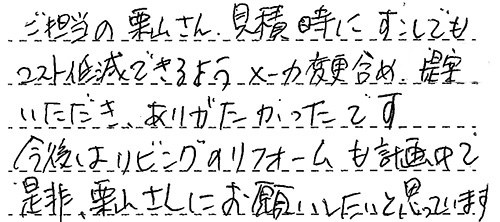 ご担当の栗山さん、見積時にすこしでも
コスト低減できるよう メーカ変更含め、提案
いただき、ありがたかったです
今後はリビングのリフォームも計画中で
是非、栗山さんにお願いしたいと思っています